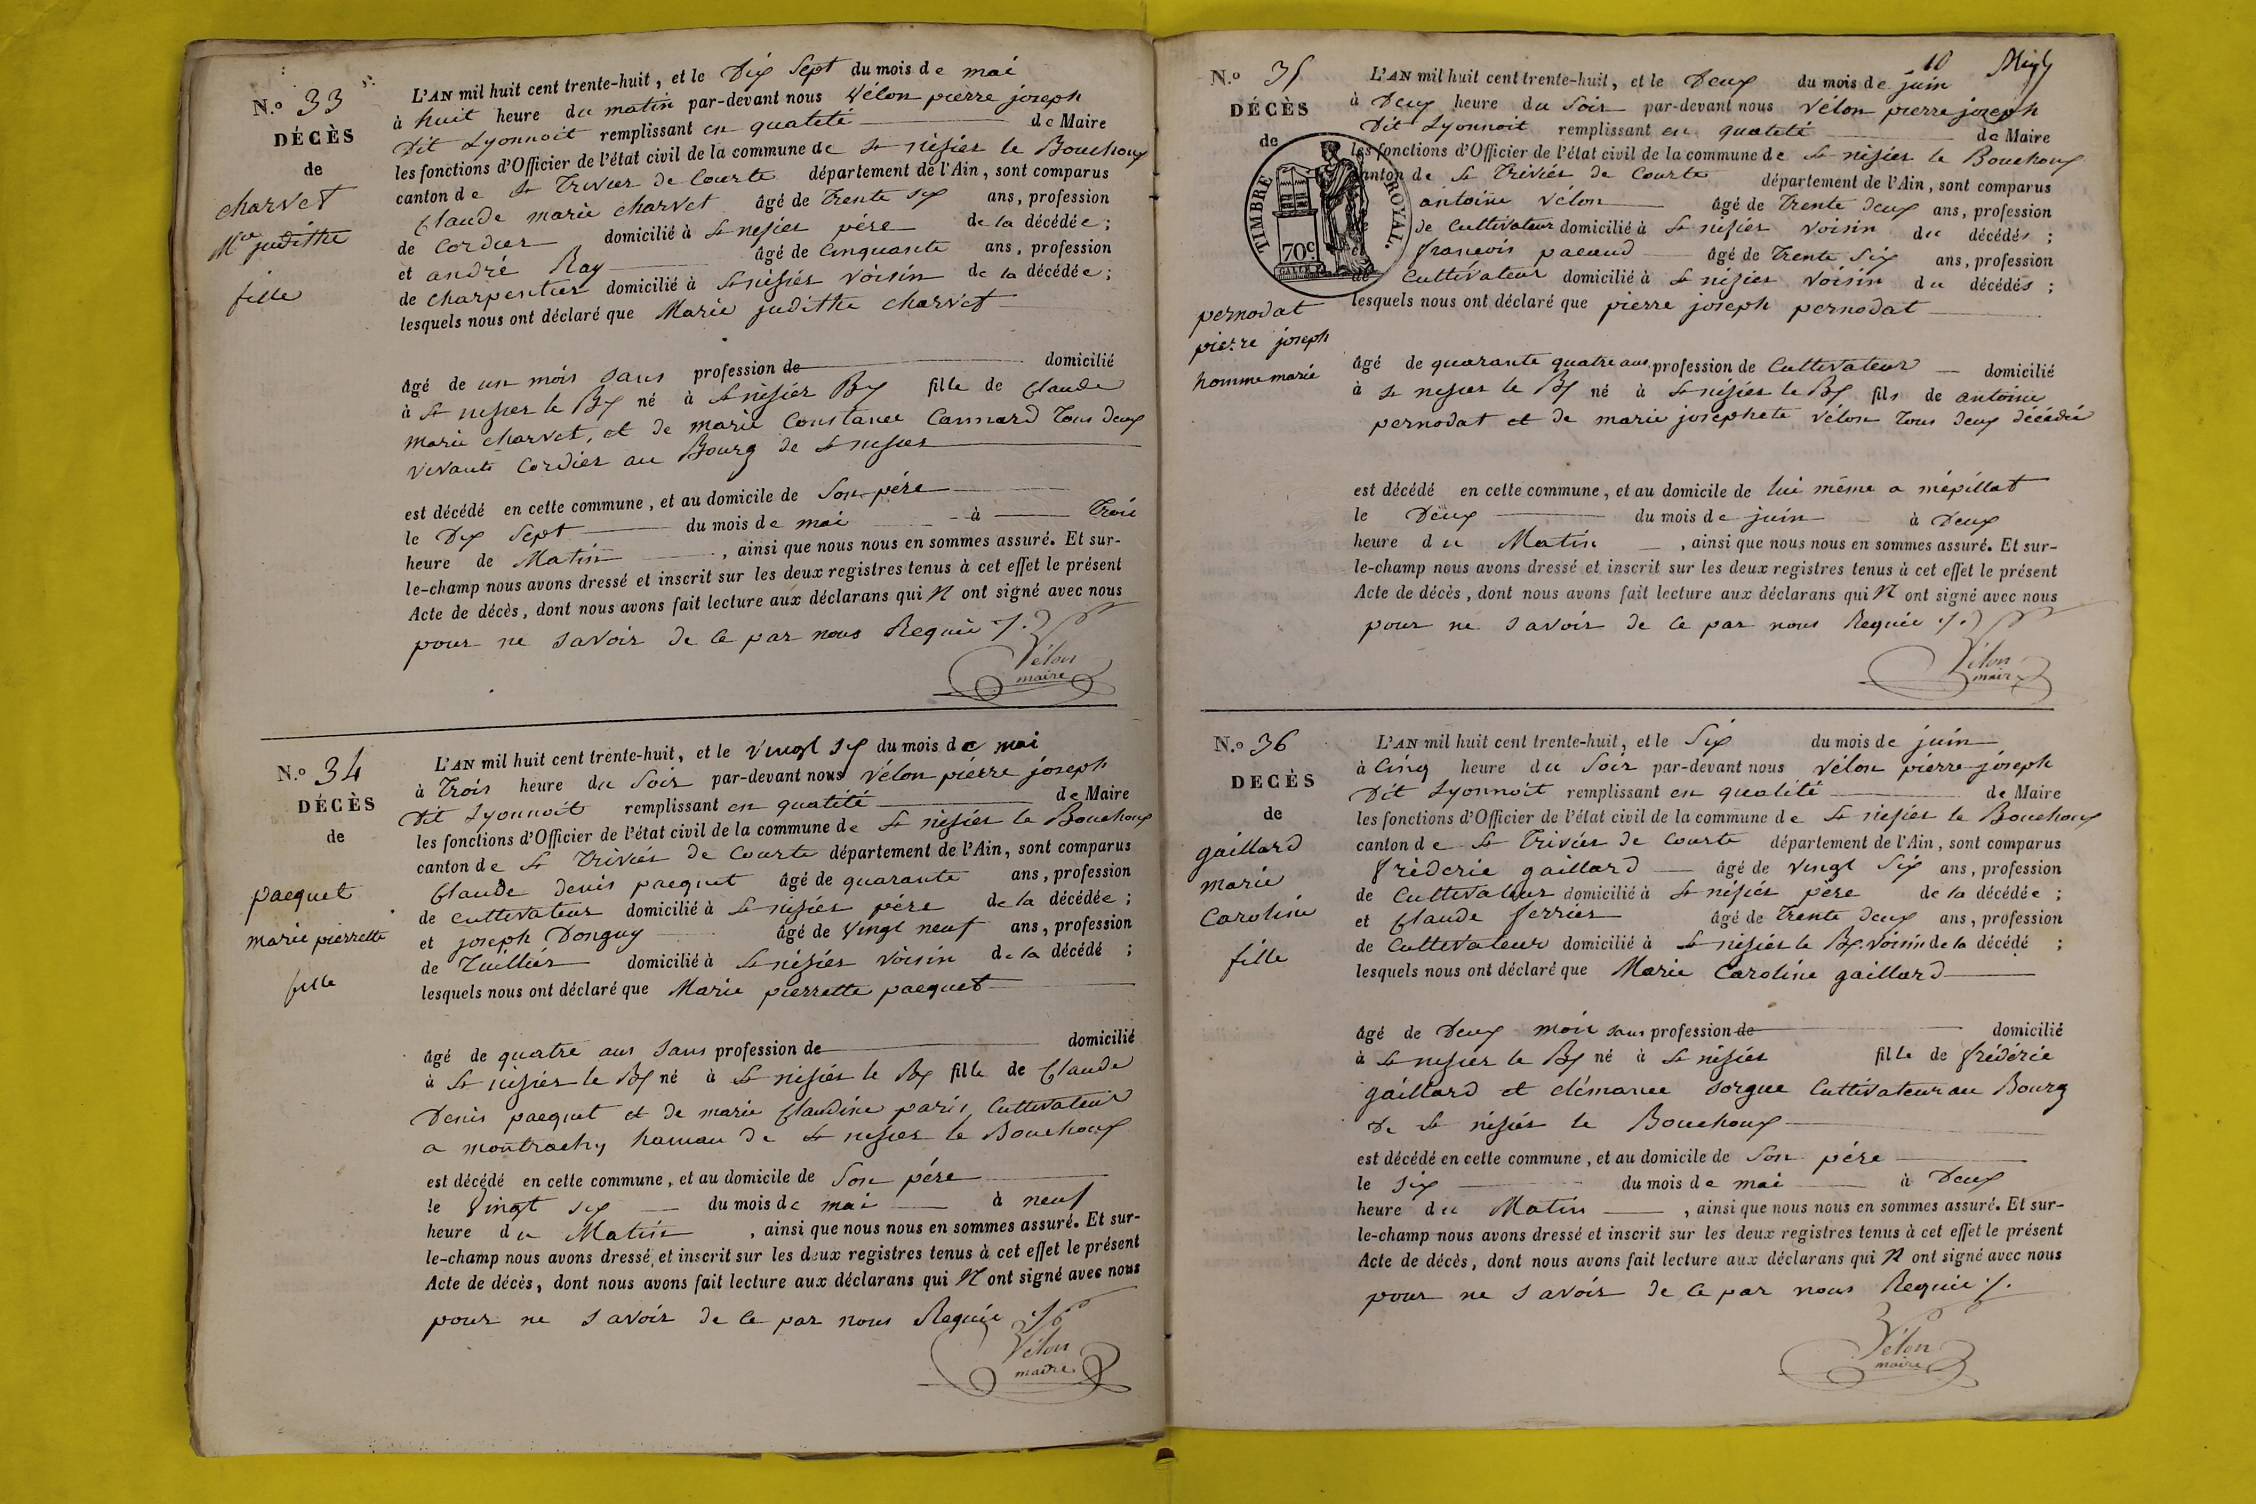 N.º 33
DÉCÈS
de
charvet
Mie judithe
fille
L'AN mil huit cent trente-huit, et le Dix Sept du mois de mai
à huit heure du matin par-devant nous Vélon pierre joseph
Dit Lyonnoit remplissant en qualité de Maire
les fonctions d'Officier de l'état civil de la commune de St nisier le Bouchoux
canton de St Trivier de Courte département de l'Ain, sont comparus
Claude marie charvet âgé de Trente Six ans, profession
de Cordier domicilié à St nisier père de la décédée;
et andré Ray âgé de Cinquante ans, profession
de charpentier domicilié à St nisier Voisin de la décédée;
lesquels nous ont déclaré que Marie judithe charvet
âgé de un mois Sans profession de domicilié
à St nisier le Bx né à St nisier Bx fille de Claude
marie charvet, et de marie Constance Cannard Tous deux
Vivants Cordier au Bourg de St nisier
est décédé en cette commune, et au domicile de Son père
le Dix Sept du mois de mai à Trois
heure de Matin, ainsi que nous nous en sommes assuré. Et sur-
le-champ nous avons dressé et inscrit sur les deux registres tenus à cet effet le présent
Acte de décès, dont nous avons fait lecture aux déclarans qui N ont signé avec nous
pour ne Savoir de Ce par nous Requis ./.
Vélon
maire
N.º 34
DÉCÈS
de
pacquet
marie pierrette
fille
L'AN mil huit cent trente-huit, et le Vingt Six du mois de mai
à Trois heure du Soir par-devant nous Vélon pierre joseph
Dit Lyonnoit remplissant en qualité de Maire
les fonctions d'Officier de l'état civil de la commune de St nisier le Bouchoux
canton de St Trivier de Courte département de l'Ain, sont comparus
Claude denis pacquet âgé de quarante ans, profession
de cultivateur domicilié à St nisier père de la décédée;
et joseph Donguy âgé de Vingt neuf ans, profession
de Tuillier domicilié à St nisier Voisin de la décédé;
lesquels nous ont déclaré que Marie pierrette pacquet
âgé de quatre ans Sans profession de domicilié
à St nisier le Bx né à St nisier le Bx fille de Claude
Denis pacquet et de marie Claudine paris, Cultivateur
a montrachy hameau de St nisier le Bouchoux
est décédé en cette commune, et au domicile de Son père
le Vingt Six du mois de mai à neuf
heure du Matin, ainsi que nous nous en sommes assuré. Et sur-
le-champ nous avons dressé, et inscrit sur les deux registres tenus à cet effet le présent
Acte de décès, dont nous avons fait lecture aux déclarans qui N ont signé avec nous
pour ne Savoir de Ce par nous Requis ./.
Vélon
maire
10
N.º 35
DÉCÈS
de
TIMBRE ROYAL.
70c
pernodat
pierre joseph
homme marié
L'AN mil huit cent trente-huit, et le Deux du mois de juin
à Deux heure du Soir par-devant nous Vélon pierre joseph
Dit Lyonnoit remplissant en qualité de Maire
les fonctions d'Officier de l'état civil de la commune de St nisier le Bouchoux
canton de St Trivier de Courte département de l'Ain, sont comparus
antoine Vélon âgé de Trente deux ans, profession
de Cultivateur domicilié à St nisier Voisin du décédés;
francois pacaud âgé de Trente Six ans, profession
Cultivateur domicilié à St nisier Voisin du décédés;
lesquels nous ont déclaré que pierre joseph pernodat
âgé de quarante quatre ans profession de Cultivateur domicilié
à St nisier le Bx né à St nisier le Bx fils de antoine
pernodat et de marie josephete Vélon Tous deux décédé
est décédé en cette commune, et au domicile de lui même a mépillat
le Deux du mois de juin à Deux
heure du Matin, ainsi que nous nous en sommes assuré. Et sur-
le-champ nous avons dressé et inscrit sur les deux registres tenus à cet effet le présent
Acte de décès, dont nous avons fait lecture aux déclarans qui N ont signé avec nous
pour ne Savoir de Ce par nous Requis ./.
Vélon
maire
N.º 36
DÉCÈS
de
gaillard
marie
Caroline
fille
L'AN mil huit cent trente-huit, et le Six du mois de juin
à Cinq heure du Soir par-devant nous Vélon pierre joseph
Dit Lyonnoit remplissant en qualité de Maire
les fonctions d'Officier de l'état civil de la commune de St nisier le Bouchoux
canton de St Trivier de Courte département de l'Ain, sont comparus
fréderic gaillard âgé de Vingt Six ans, profession
de Cultivateur domicilié à St nisier père de la décédée;
et Claude ferrier âgé de Trente deux ans, profession
de Cultivateur domicilié à St nisier le Bx. Voisin de la décédé;
lesquels nous ont déclaré que Marie Caroline gaillard
âgé de Deux mois sans profession de domicilié
à St nisier le Bx né à St nisier fille de frédéric
gaillard et clémance Sorgue Cultivateur au Bourg
De St nisier le Bouchoux
est décédé en cette commune, et au domicile de Son père
le Six du mois de mai à Deux
heure du Matin, ainsi que nous nous en sommes assuré. Et sur-
le-champ nous avons dressé et inscrit sur les deux registres tenus à cet effet le présent
Acte de décès, dont nous avons fait lecture aux déclarans qui N ont signé avec nous
pour ne Savoir de Ce par nous Requis ./.
Vélon
maire